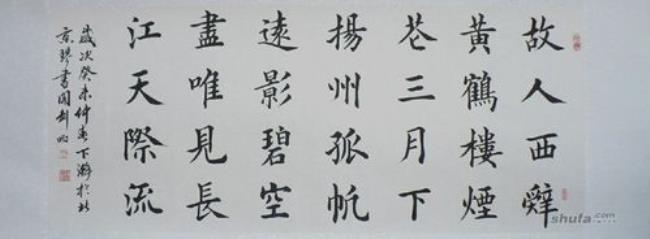 故人西辭
黃鶴樓煙
花三月下
揚州孤帆
遠影碧空
盡唯見長
江天際流
歲次癸未仲春下澣於北
京書
shufa.com